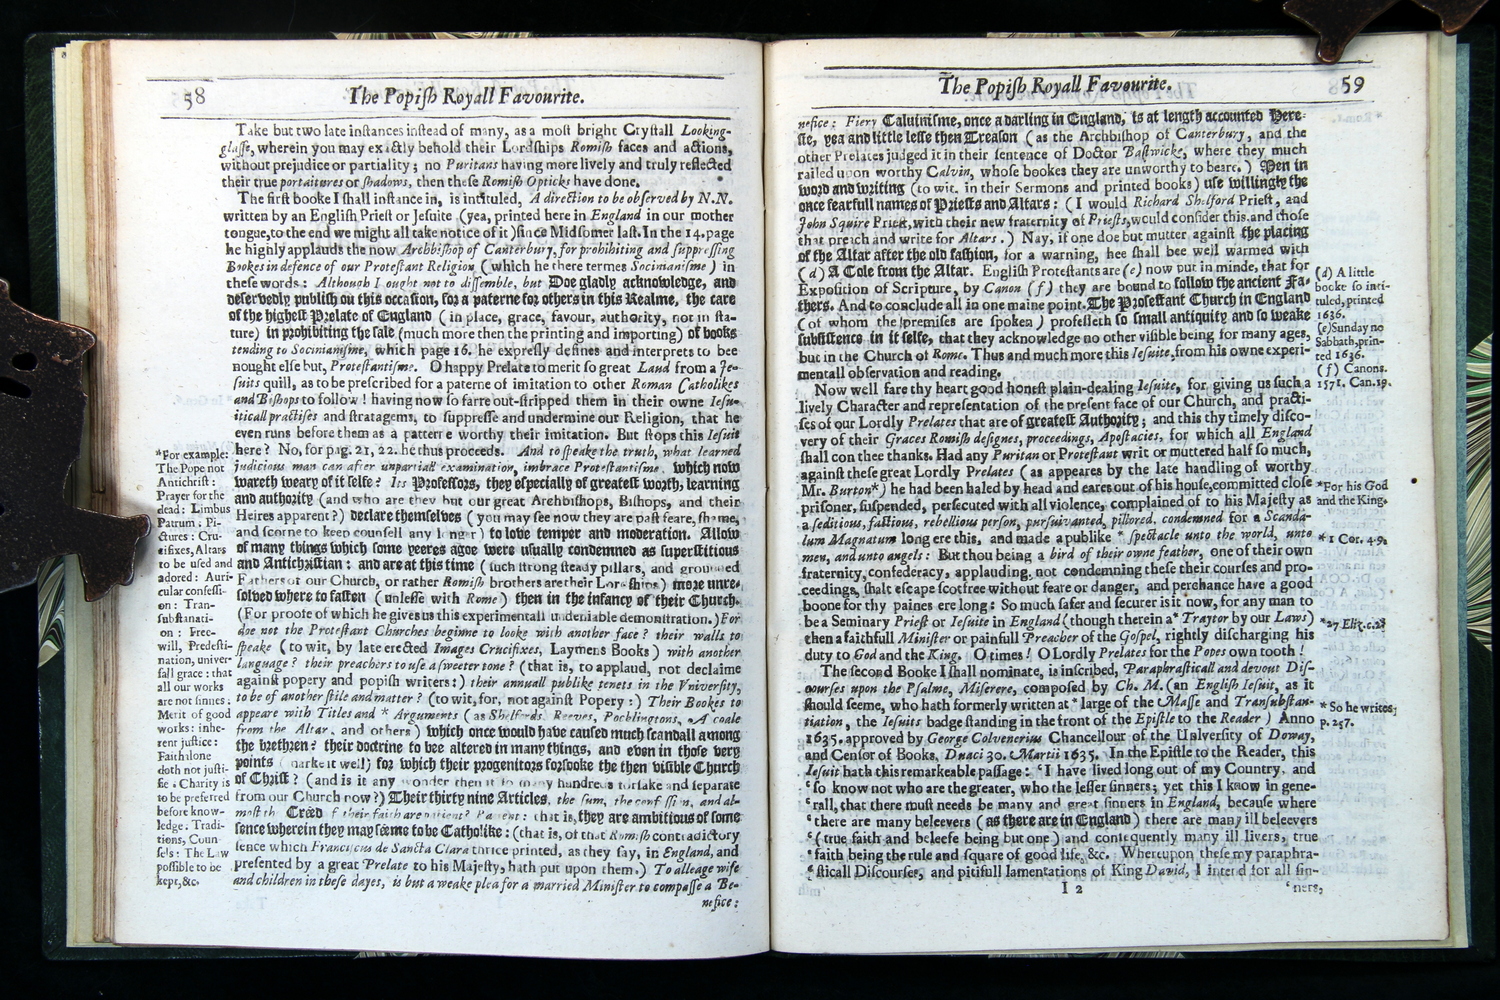 58
The Popish Royall Favourite.
Take but two late instances instead of many, as a most bright Crystall Looking-
glasse, wherein you may exactly behold their Lordships Romish faces and actions,
without prejudice or partiality; no Puritans having more lively and truly reflected
their true portaitures or shadows, then these Romish Opticks have done.
The first booke I shall instance in, is intituled, A direction to be observed by N.N.
written by an English Priest or Jesuite (yea, printed here in England in our mother
tongue, to the end we might all take notice of it) since Midsomer last. In the 14. page
he highly applauds the now Archbishop of Canterbury, for prohibiting and suppressing
Bookes in defence of our Protestant Religion (which he there termes Socinianisme) in
these words: Although I ought not to dissemble, but Doe gladly acknowledge, and
deservedly publish on this occasion, for a paterne for others in this Realme, the care
of the highest Prelate of England (in place, grace, favour, authority, not in sta-
ture) in prohibiting the sale (much more then the printing and importing) of books
tending to Socinianisme, which page 16. he expresly defines and interprets to bee
nought else but, Protestantisme. O happy Prelate to merit so great Laud from a Je-
suits quill, as to be prescribed for a paterne of imitation to other Roman Catholikes
and Bishops to follow! having now so farre out-stripped them in their owne Iesu-
iticall practises and stratagems, to suppresse and undermine our Religion, that he
even runs before them as a patterre worthy their imitation. But stops this Iesuit
here? No, for pag. 21, 22. he thus proceeds. And to speake the truth, what learned
judicious man can after unpartiall examination, imbrace Protestantisme, which now
wareth weary of it selfe? Its Professors, they especially of greatest worth, learning
and authority (and who are they but our great Archbishops, Bishops, and their
Heires apparent?) declare themselves (you may see now they are past feare, shame,
and scorne to keep counsell any longer) to love temper and moderation. Allow
of many things which some yeeres agoe were usually condemned as superstitious
and Antichristian: and are at this time (such strong steady pillars, and grounded
Fathers of our Church, or rather Romish brothers are their Lordships) more unre-
solved where to fasten (unlesse with Rome) then in the infancy of their Church.
(For proofe of which he gives us this experimentall undeniable demonstration.) For
doe not the Protestant Churches beginne to looke with another face? their walls to
speake (to wit, by late erected Images Crucifixes, Laymens Books) with another
language? their preachers to use a sweeter tone? (that is, to applaud, not declaime
against popery and popish writers:) their annuall publike tenets in the Vniversity,
to be of another stile and matter? (to wit, for, not against Popery:) Their Bookes to
appeare with Titles and * Arguments (as Shelfords. Reeves, Pocklingtons, A coale
from the Altar, and others) which once would have caused much scandall among
the brethzen? their doctrine to bee altered in many things, and even in those very
points (marke it well) for which their progenitors forsooke the then visible Church
of Christ? (and is it any wonder then if so many hundreds forsake and separate
from our Church now?) Their thirty nine Articles, the sum, the confession, and al-
most the Creed of their faith are patient? Patient: that is, they are ambitious of some
sence wherein they may sæme to be Catholike: (that is, of that Romish contradictory
sence which Franciscus de Sancta Clara thrice printed, as they say, in England, and
presented by a great Prelate to his Majesty, hath put upon them.) To alleage wife
and children in these dayes, is but a weake plea for a married Minister to compasse a Be-
nefice:
*For example:
The Pope not
Antichrist:
Prayer for the
dead: Limbus
Patrum: Pi-
ctures: Cru-
cifixes, Altars
to be used and
adored: Auri-
cular confessi-
on: Tran-
substanti-
on: Free-
will, Predesti-
nation, univer-
sall grace: that
all our works
are not sinnes:
Merit of good
works: inhe-
rent justice:
Faith alone
doth not justi-
fie: Charity is
to be preferred
before know-
ledge: Tradi-
tions, Coun-
sels: The Law
possible to be
kept, &c.
The Popish Royall Favourite.
59
nefice: Fiery Caluinisme, once a darling in England, is at length accounted Here-
sie, yea and little lesse then Treason (as the Archbishop of Canterbury, and the
other Prelates judged it in their sentence of Doctor Bastwicke, where they much
railed upon worthy Calvin, whose bookes they are unworthy to beare.) Men in
word and writing (to wit. in their Sermons and printed books) use willingly the
once fearfull names of Priests and Altars: (I would Richard Shelford Priest, and
John Squire Priest, with their new fraternity of Priests, would consider this. and those
that preach and write for Altars.) Nay, if one doe but mutter against the placing
of the Altar after the old fashion, for a warning, hee shall bee well warmed with
(d) A Cole from the Altar. English Protestants are (e) now put in minde, that for
Exposition of Scripture, by Canon (f) they are bound to follow the ancient Fa-
thers. And to conclude all in one maine point. The Protestant Church in England
(of whom the premises are spoken) professeth so small antiquity and so weake
subsistence in it selfe, that they acknowledge no other visible being for many ages,
but in the Church of Rome. Thus and much more this Iesuite, from his owne experi-
mentall observation and reading.
Now well fare thy heart good honest plain-dealing Iesuite, for giving us such a
lively Character and representation of the present face of our Church, and practi-
ses of our Lordly Prelates that are of greatest Authority; and this thy timely disco-
very of their Graces Romish designes, proceedings, Apostacies, for which all England
shall con thee thanks. Had any Puritan or Protestant writ or muttered half so much,
against these great Lordly Prelates (as appeares by the late handling of worthy
Mr. Burton*) he had been haled by head and eares out of his house, committed close
prisoner, suspended, persecuted with all violence, complained of to his Majesty as
a seditious, factious, rebellious person, pursuivanted, pillored, condemned for a Scanda-
lum Magnatum long ere this, and made a publike * spectacle unto the world, unto
men, and unto angels: But thou being a bird of their owne feather, one of their own
fraternity, confederacy, applauding, not condemning these their courses and pro-
ceedings, shalt escape scotfree without feare or danger, and perchance have a good
boone for thy paines ere long: So much safer and securer is it now, for any man to
be a Seminary Priest or Iesuite in England (though therein a * Traytor by our Laws)
then a faithfull Minister or painfull Preacher of the Gospel, rightly discharging his
duty to God and the King. O times! O Lordly Prelates for the Popes own tooth!
The second Booke I shall nominate, is inscribed, Paraphrasticall and devout Dis-
courses upon the Psalme, Miserere, composed by Ch. M. (an English Iesuit, as it
should seeme, who hath formerly written at * large of the Masse and Transubstan-
tiation, the Iesuits badge standing in the front of the Epistle to the Reader) Anno
1635. approved by George Colvenerius Chancellour of the University of Doway,
and Censor of Books, Duaci 30. Martii 1635. In the Epistle to the Reader, this
Iesuit hath this remarkeable passage: ‘I have lived long out of my Country, and
‘so know not who are the greater, who the lesser sinners; yet this I know in gene-
‘rall, that there must needs be many and great sinners in England, because where
‘there are many beleevers (as there are in England) there are many ill beleevers
‘(true faith and beleefe being but one) and consequently many ill livers, true
‘faith being the rule and square of good life, &c. Whereupon these my paraphra-
‘sticall Discourses, and pitifull lamentations of King David, I intend for all sin-
I 2
‘ners,
(d) A little
booke so inti-
tuled, printed
1636.
(e) Sunday no
Sabbath, prin-
ted 1636.
(f) Canons.
1571. Can. 19.
*For his God
and the King.
*1 Cor. 4.9.
*27 Eliz. c. 2.
* So he writes,
p. 257.